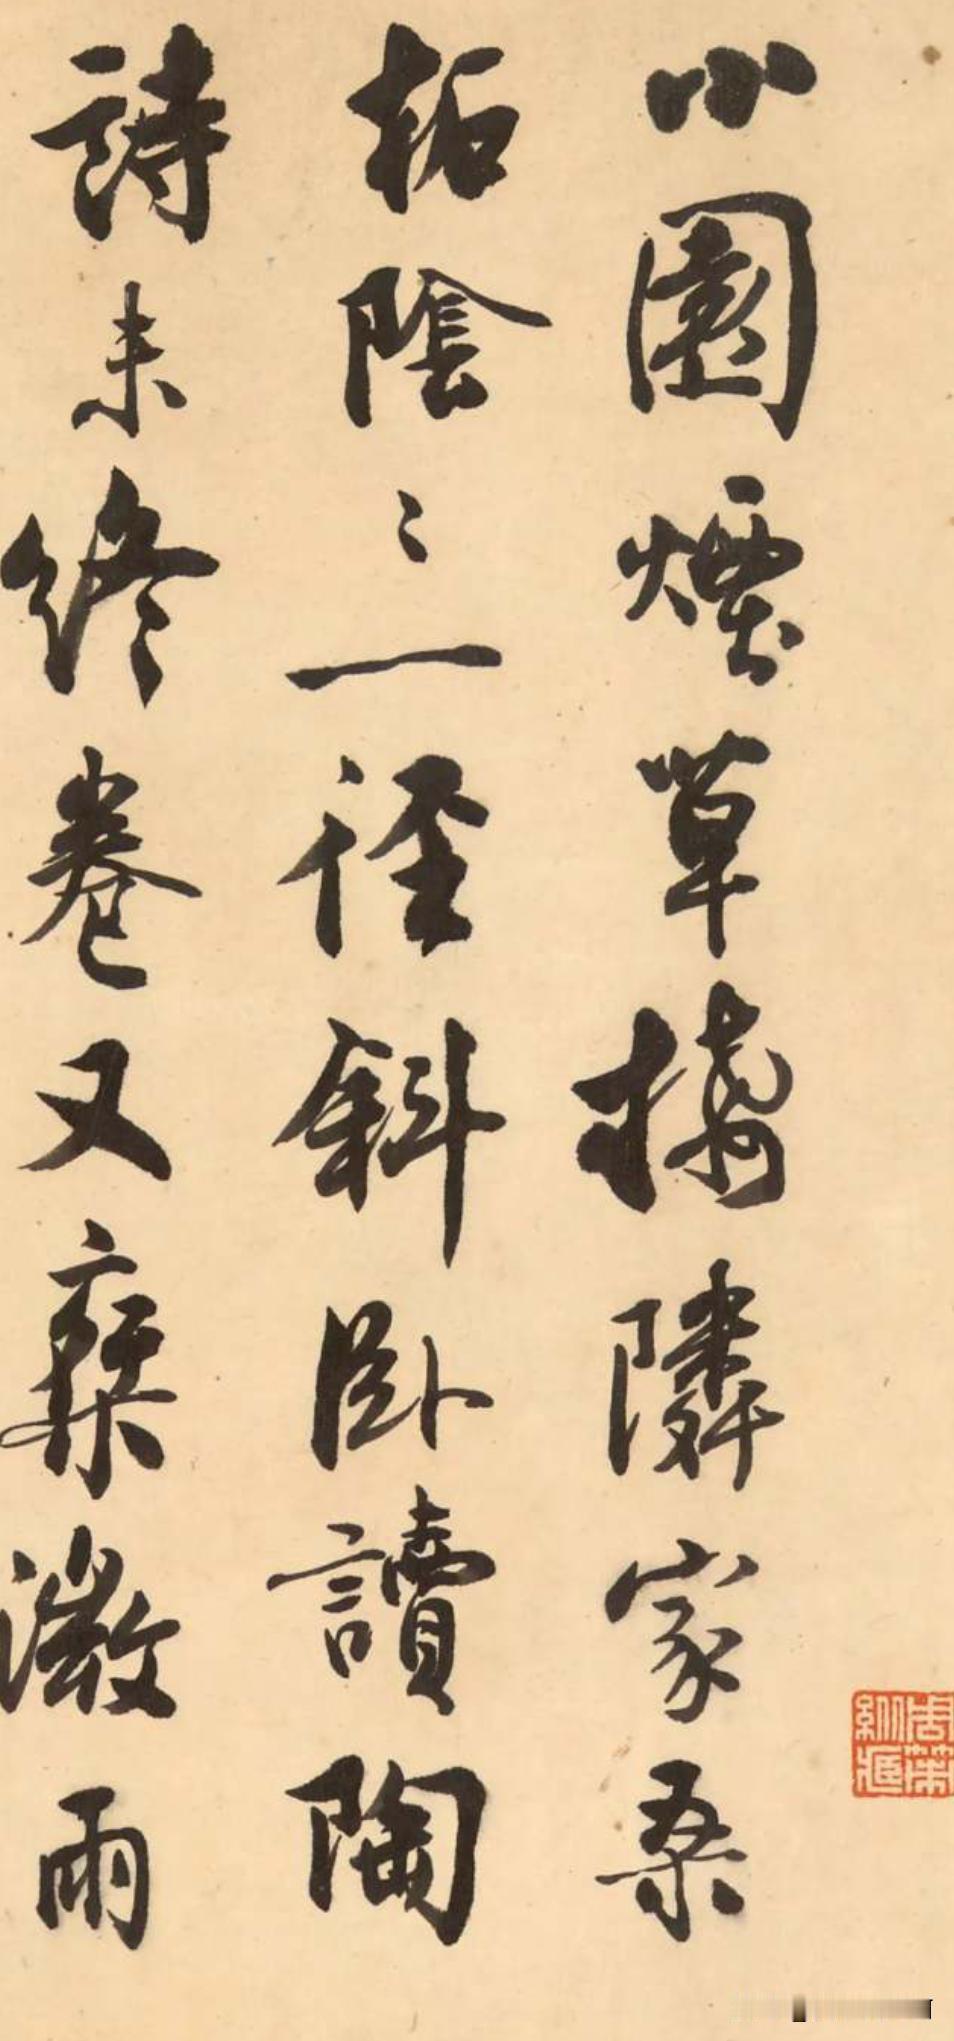 小園煙草接隣家桑
柘陰〻一徑斜臥讀陶
詩未終卷又乘微雨